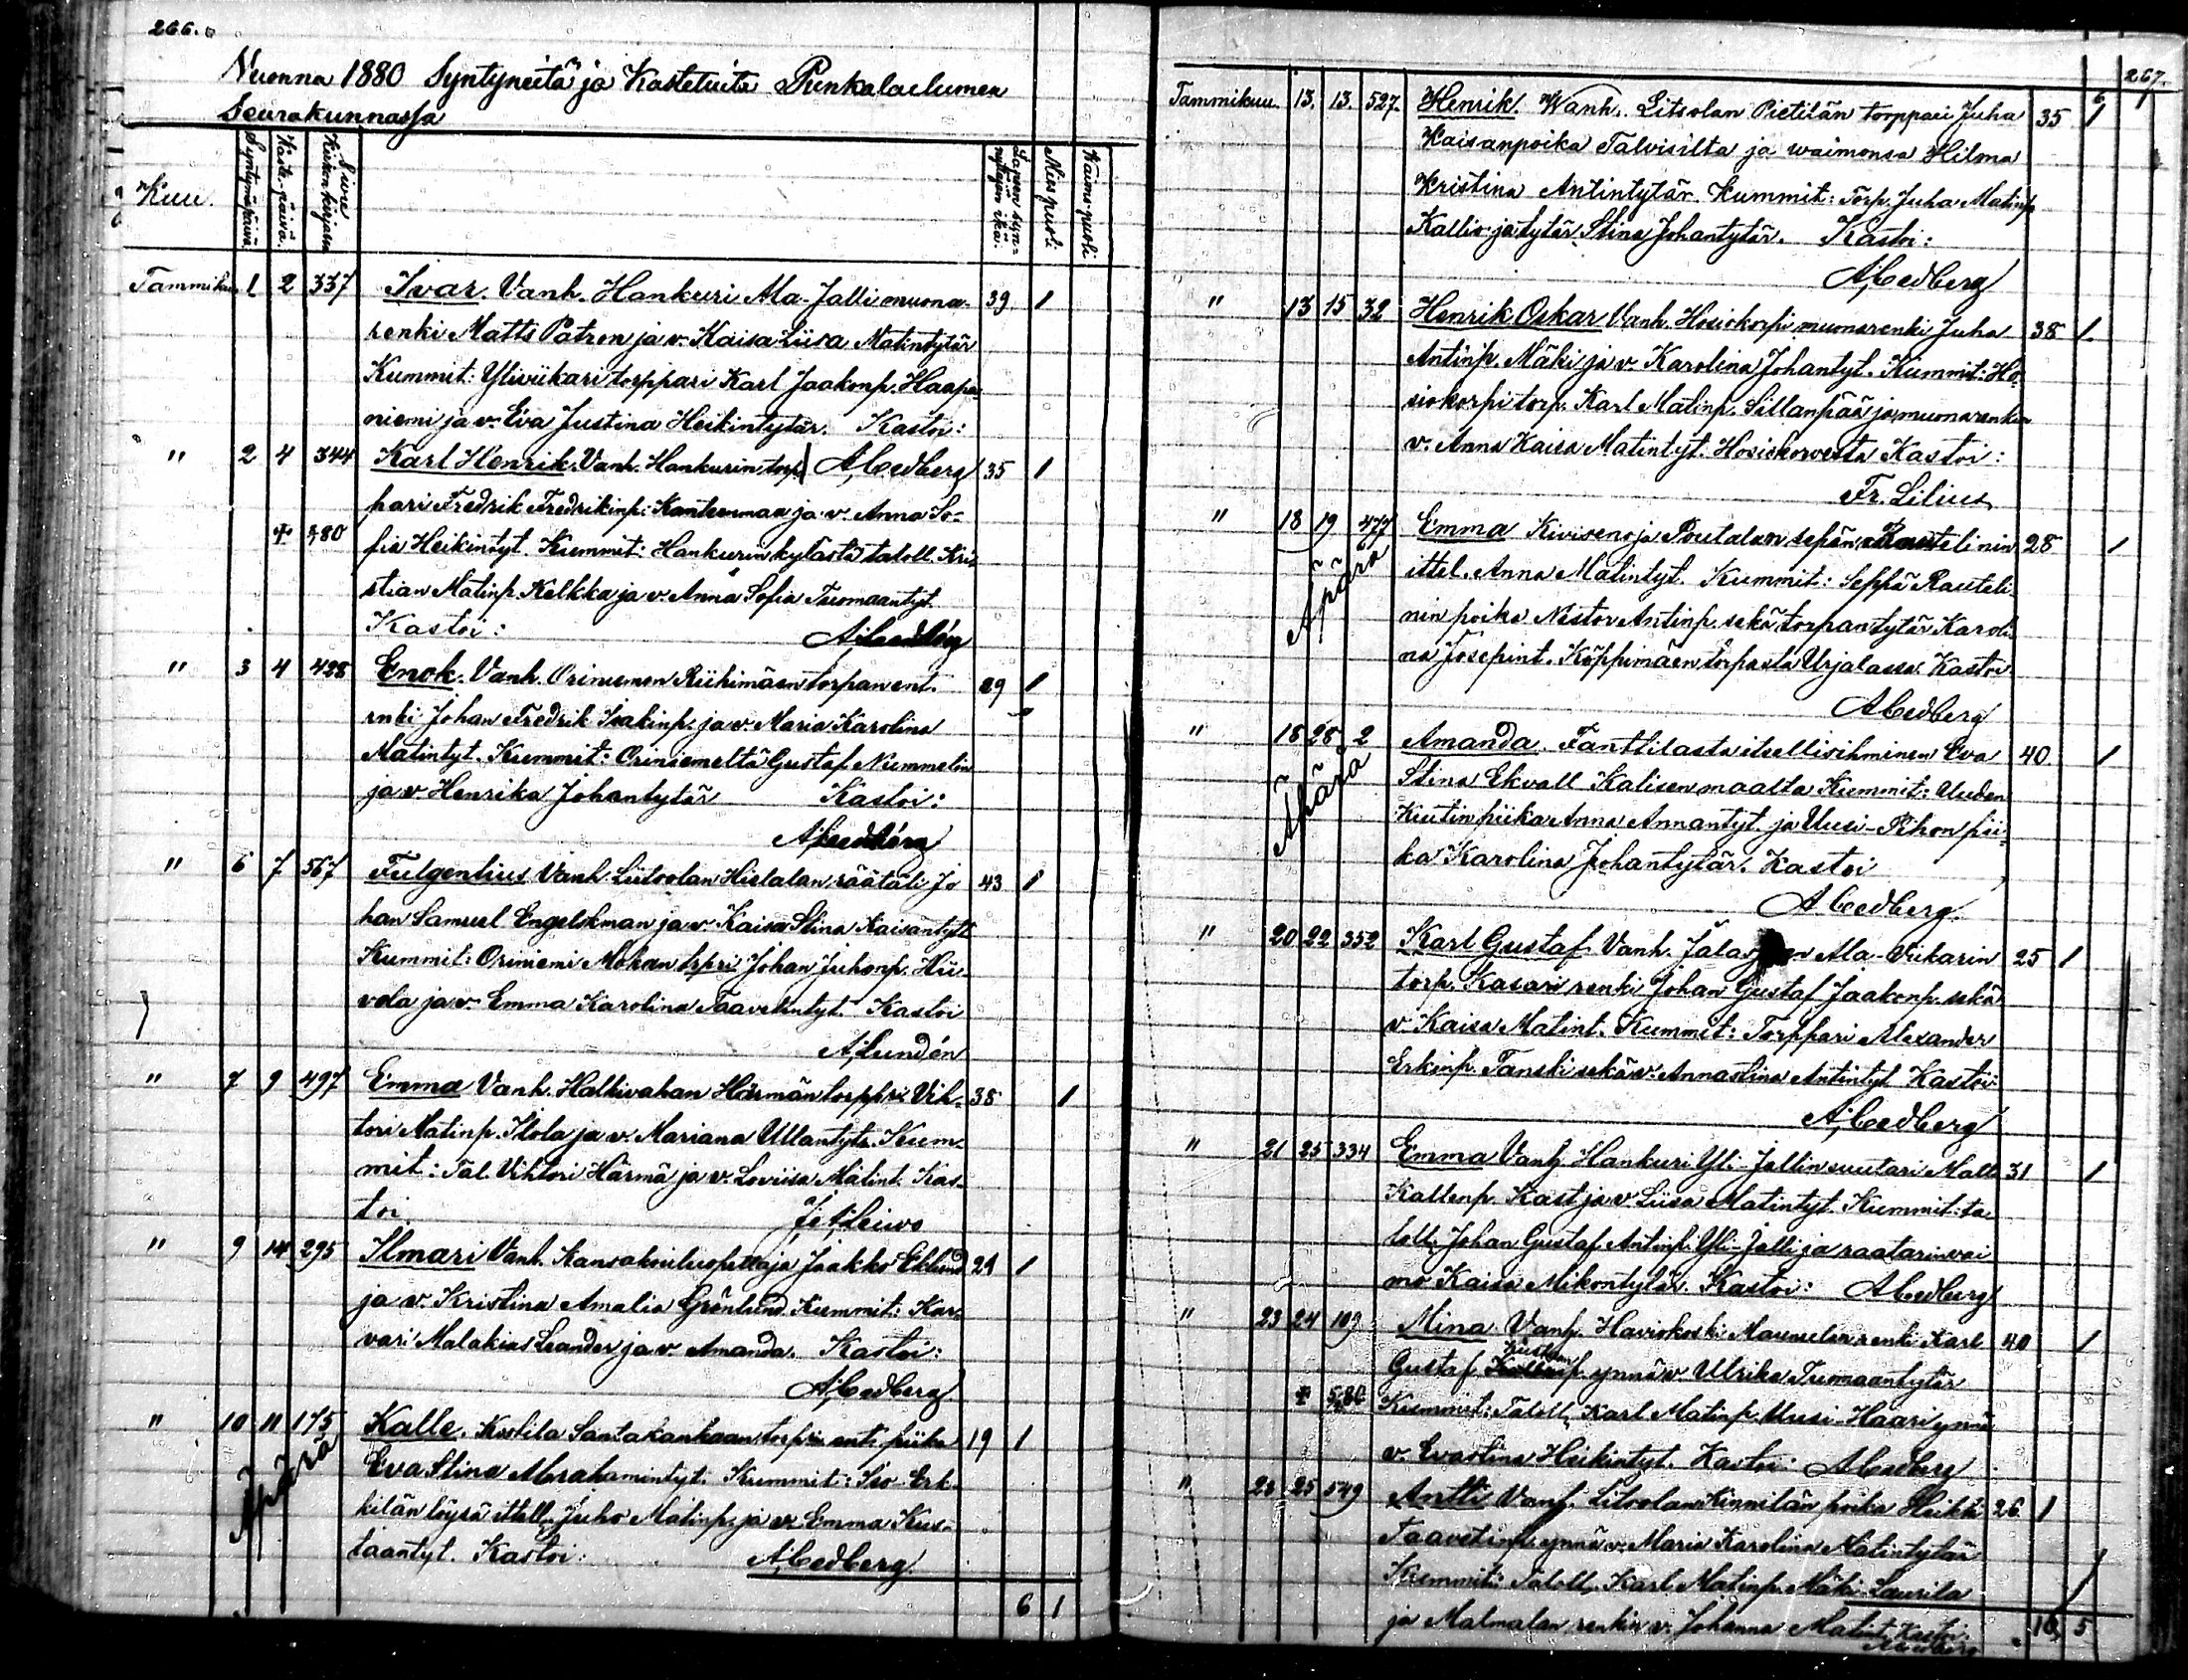 266.
Nuonna 1880 Syntyneitä ja Kastetuita Punkalaitumen
Seurakunnassa
Kuu.
Syntymäpäivä
Kaste-päivä.
Sivu Kirkonkirjassa
Miespuoli
Waimo-puoli
Tammikuu 1 2 337 Ivar. Vanh. Hankuri Ala-Jalli muona- 39 1
renki Matts Patron ja v. Kaisa Liisa Matintytär
Kummit: Yliviikari torppari Karl Jaakonp. Haapa
niemi ja v. Eva Justina Heikintytär. Kastoi:
" 2 4 344 Karl Henrik. Vanh. Hankurin torp A Cedberg 35 1
pari Fredrik Fredrikinp. Kantenmaa ja v. Anna So-
+ 80 fia Heikintyt. Kummit: Hankurin kylästä taloll. Kri
stian Matinp. Kelkka ja v. Anna Sofia Tuomaantyt.
Kastoi: A Cedberg
" 3 4 428 Enok. Vanh. Oriniemen Riihimäen torpan ent. 29 1
renki Johan Fredrik Isakinp. ja v. Maria Karolina
Matintyt. Kummit: Oriniemeltä Gustaf Nummelin
ja v Henrika Johantytär Kastoi:
A Cedberg
" 6 7 567 Fulgentius Vanh. Liitsolan Hietalan räätäli Jo 43 1
han Samuel Engelskman ja v. Kaisa Stina Kaisantytt
Kummit: Oriniemi Mohan trpri Johan Juhonp. Hii-
vola ja v. Emma Karolina Taavetintyt. Kastoi
A Lundén
" 7 9 497 Emma Vanh. Halkivahan Härmän torppri Vih- 38 1
tori Matinp. Ilola ja v. Mariana Ullantytr. Kum-
mit: Tal. Vihtori Härmä ja v. Loviisa Matint. Kas-
toi
" 9 14 295 Ilmari Vanh. Kansakouluopettaja Jaakko Eklund 29 1
ja v. Kristina Amalia Grönlund. Kummit: Kar-
vari Malakias Leander ja v. Amanda. Kastoi:
A Cedberg
" 10 11 175 Kalle. Kostila Santakankaan torpri ent. piika 19 1
Äpärä
Eva Stina Abrahamintyt. Kummit: Iso-Erk-
kilän löysä ittell. Juho Matinp. ja v. Emma Kus-
taantyt. Kastoi: A Cedberg
6 1
267.
6 1
Tammikuu 13. 13. 527. Henrik. Wanh. Liitsolan Pietilän torppari Juha 35 1
Kaisanpoika Talvisilta ja waimonsa Hilma
Kristina Antintytär. Kummit: Torp. Juha Matinp
Kallio ja tytär Stina Johantytär. Kastoi:
A Cedberg
" 13 15 32 Henrik Oskar Vanh. Hosiokorpi muonarenki Juha 38 1
Antinp. Mäki ja v. Karolina Johantyt. Kummit: Ho
siokorpi torp. Karl Matinp. Sillanpää ja muonarenkin
v. Anna Kaisa Matintyt. Hosiokorvesta Kastoi:
Fr. Lilius
" 18 19 477 Emma Kivisenoja Poutalan sepän Rautelinin 28 1
Äpärä
ittel. Anna Matintyt. Kummit: Seppä Rauteli
nin poika Nestor Antinp. sekä torpantytär Karoli
na Josepint. Köppimäen torpasta Urjalassa. Kastoi
A Cedberg
" 18 28 2 Amanda. Fanttilasta itsellisihminen Eva 40 1
Äpärä
Stina Ekvall Kalisenmaalta Kummit: Uuden
Kuitin piika Anna Annantyt. ja Uusi-Pihon pii-
ka Karolina Johantytär. Kastoi
A Cedberg.
" 20 22 352 Karl Gustaf Vanh. Ala-Viikarin 25 1
torp. Kasari renki Johan Gustaf Jaakonp. sekä
v. Kaisa Matint. Kummit: Torppari Alexander
Erkinp. Tanski sekä v. Annastina Antintyt. Kastoi
A Cedberg
" 21 25 334 Emma Vanh. Hankuri Yli-Jallin suutari Matt 31 1
Kallenp. Kast ja v. Liisa Matintyt. Kummit: ta
loll. Johan Gustaf Antinp. Yli-Jalli ja raatarinvai
mo Kaisa Mikontytär. Kastoi: A Cedberg
" 23 24 109 Mina Vanh. Haviokoski Maunulan renki Karl 40 1
Gustaf Kustaanp. ynnä v. Ulrika Tuomaantytär
+ Kummit: Taloll. Karl Matinp. Uusi-Haari ynnä
v. Evastina Heikintyt. Kastoi: A Cedberg
" 23 25 549 Antti Vanh. Liitsolan Kinnilän poika Heikki 26 1
Taavetinp. ynnä v. Maria Karolina Matintytär
Kummit: Taloll. Karl Matinp. Mäki-Laurila
ja Malmalan renkin v. Johanna Matint. Kastoi
A Cedberg
10 5